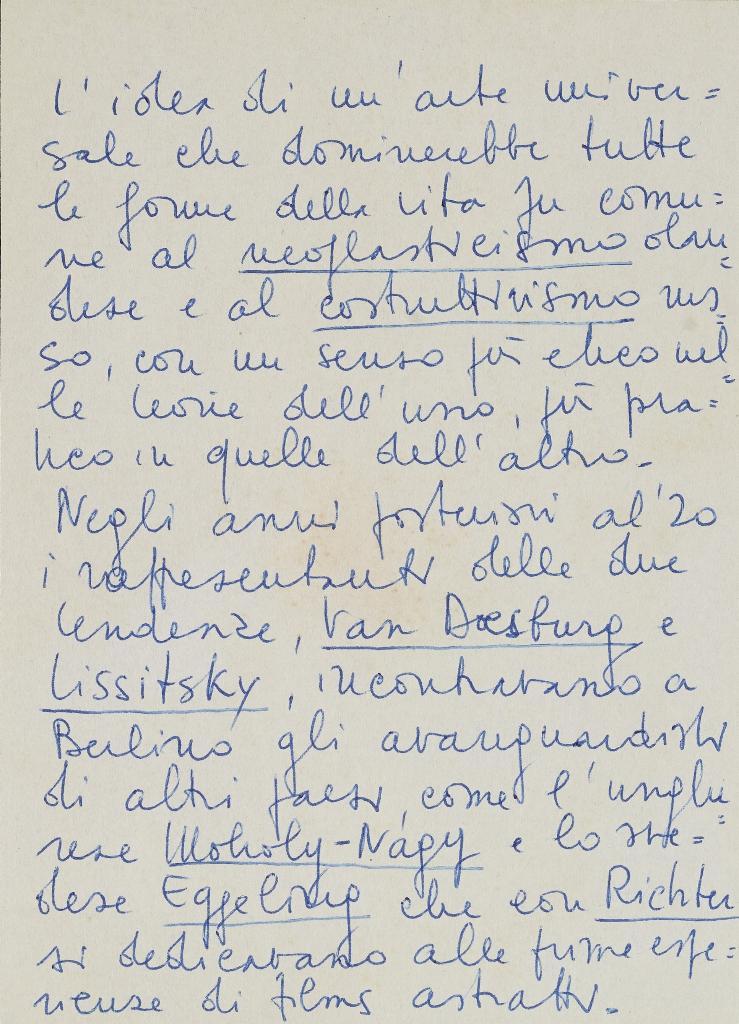 L'idea di un'arte univer=
sale che dominerebbe tutte
le forme della vita fu comu=
ne al neoplasticismo olan=
dese e al costruttivismo rus=
so, con un senso più etico nel=
le teorie dell'uno, più pra=
tico in quelle dell'altro.
Negli anni posteriori al '20
i rappresentanti delle due
tendenze, Van Doesburg e
Lissitsky, incontravano a
Berlino gli avanguardisti
di altri paesi, come l'unghe=
rese Moholy-Nágy e lo sve=
dese Eggeling che con Richter
si dedicavano alle prime espe=
rienze di films astratti.